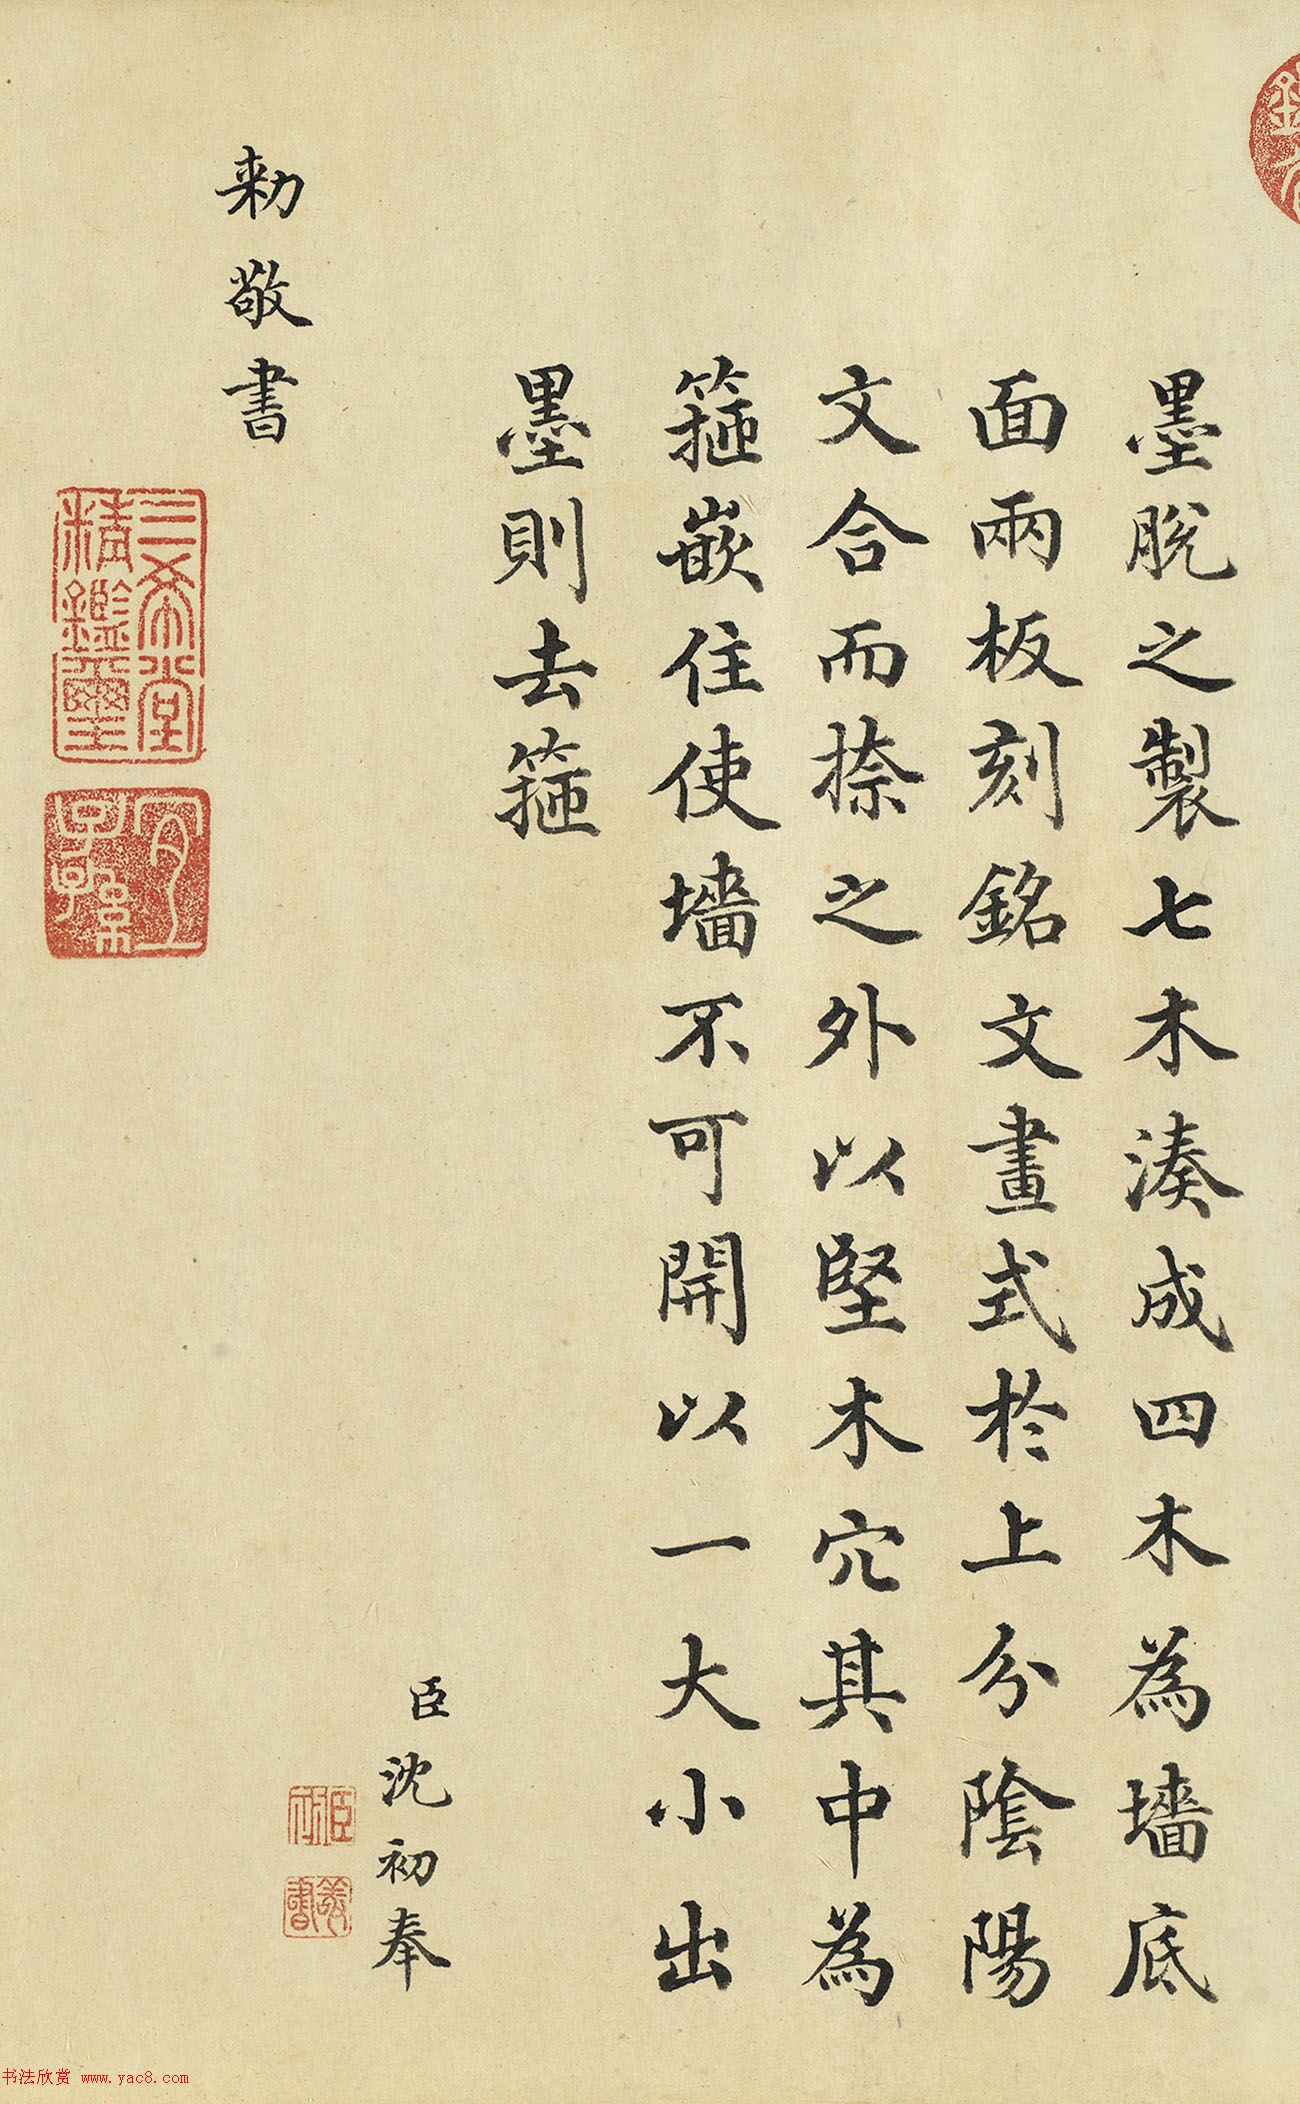 墨脫之製七木湊成四木為墻底
面兩板刻銘文畫式於上分陰陽
文合而捺之外以堅木穴其中為
箍嵌住使墻不可開以一大小出
墨則去箍
臣沈初奉
敕敬書
三希堂
精鑑璽
宜
子孫
臣初
敬書
书法欣赏 www.yac8.com